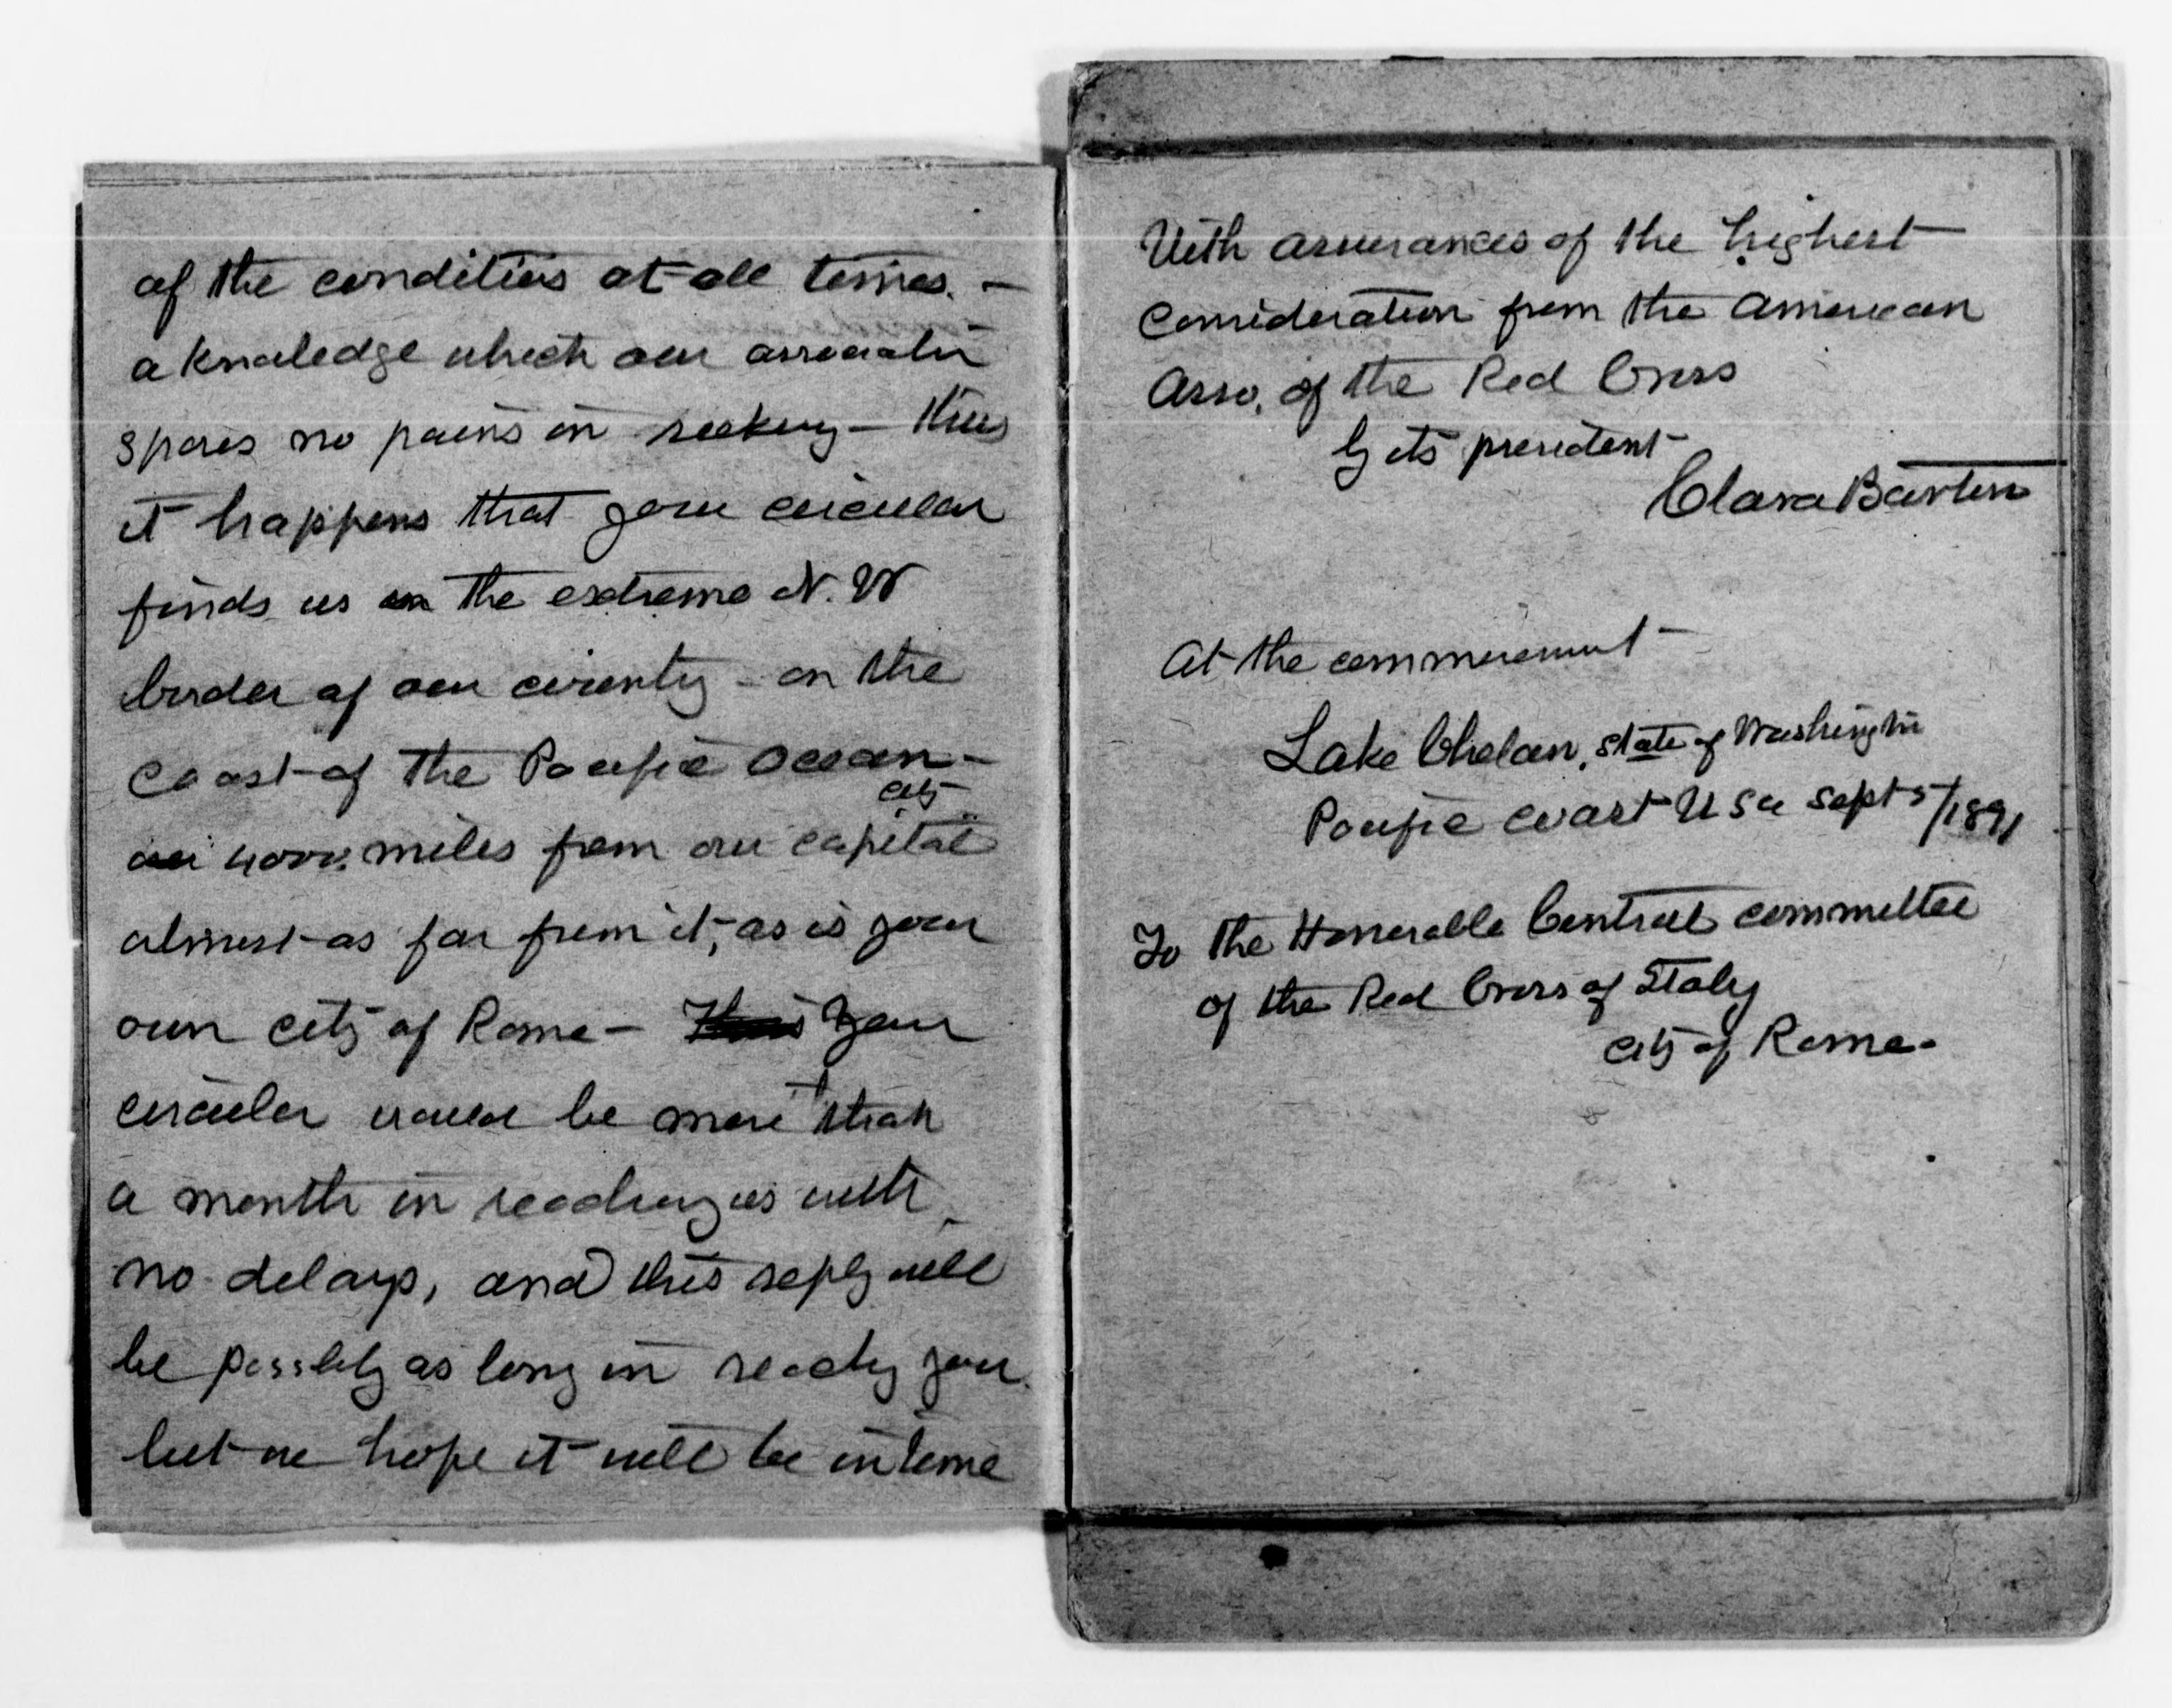 of the conditions at all times. —
a knowledge which our association
spares no pains in seeking — thus
it happens that your circular
finds us on the extreme N. W
border of our country – on the
coast of the Pacific Ocean –
city
4000. miles from our capital
almost as far from it, as is your
own city of Rome – Your
circular would be more than
a month in reaching us with
no delays, and this reply will
be possibly as long in reaching you
but we hope it will be in time
With assurances of the highest
consideration from the American
Asso. of the Red Cross
by its president
Clara Barton
At the commencement
Lake Chelan, State of Washington
Pacific coast U S a Sept 5/1891
To the Honorable Central committee
of the Red Cross of Italy
City of Rome.